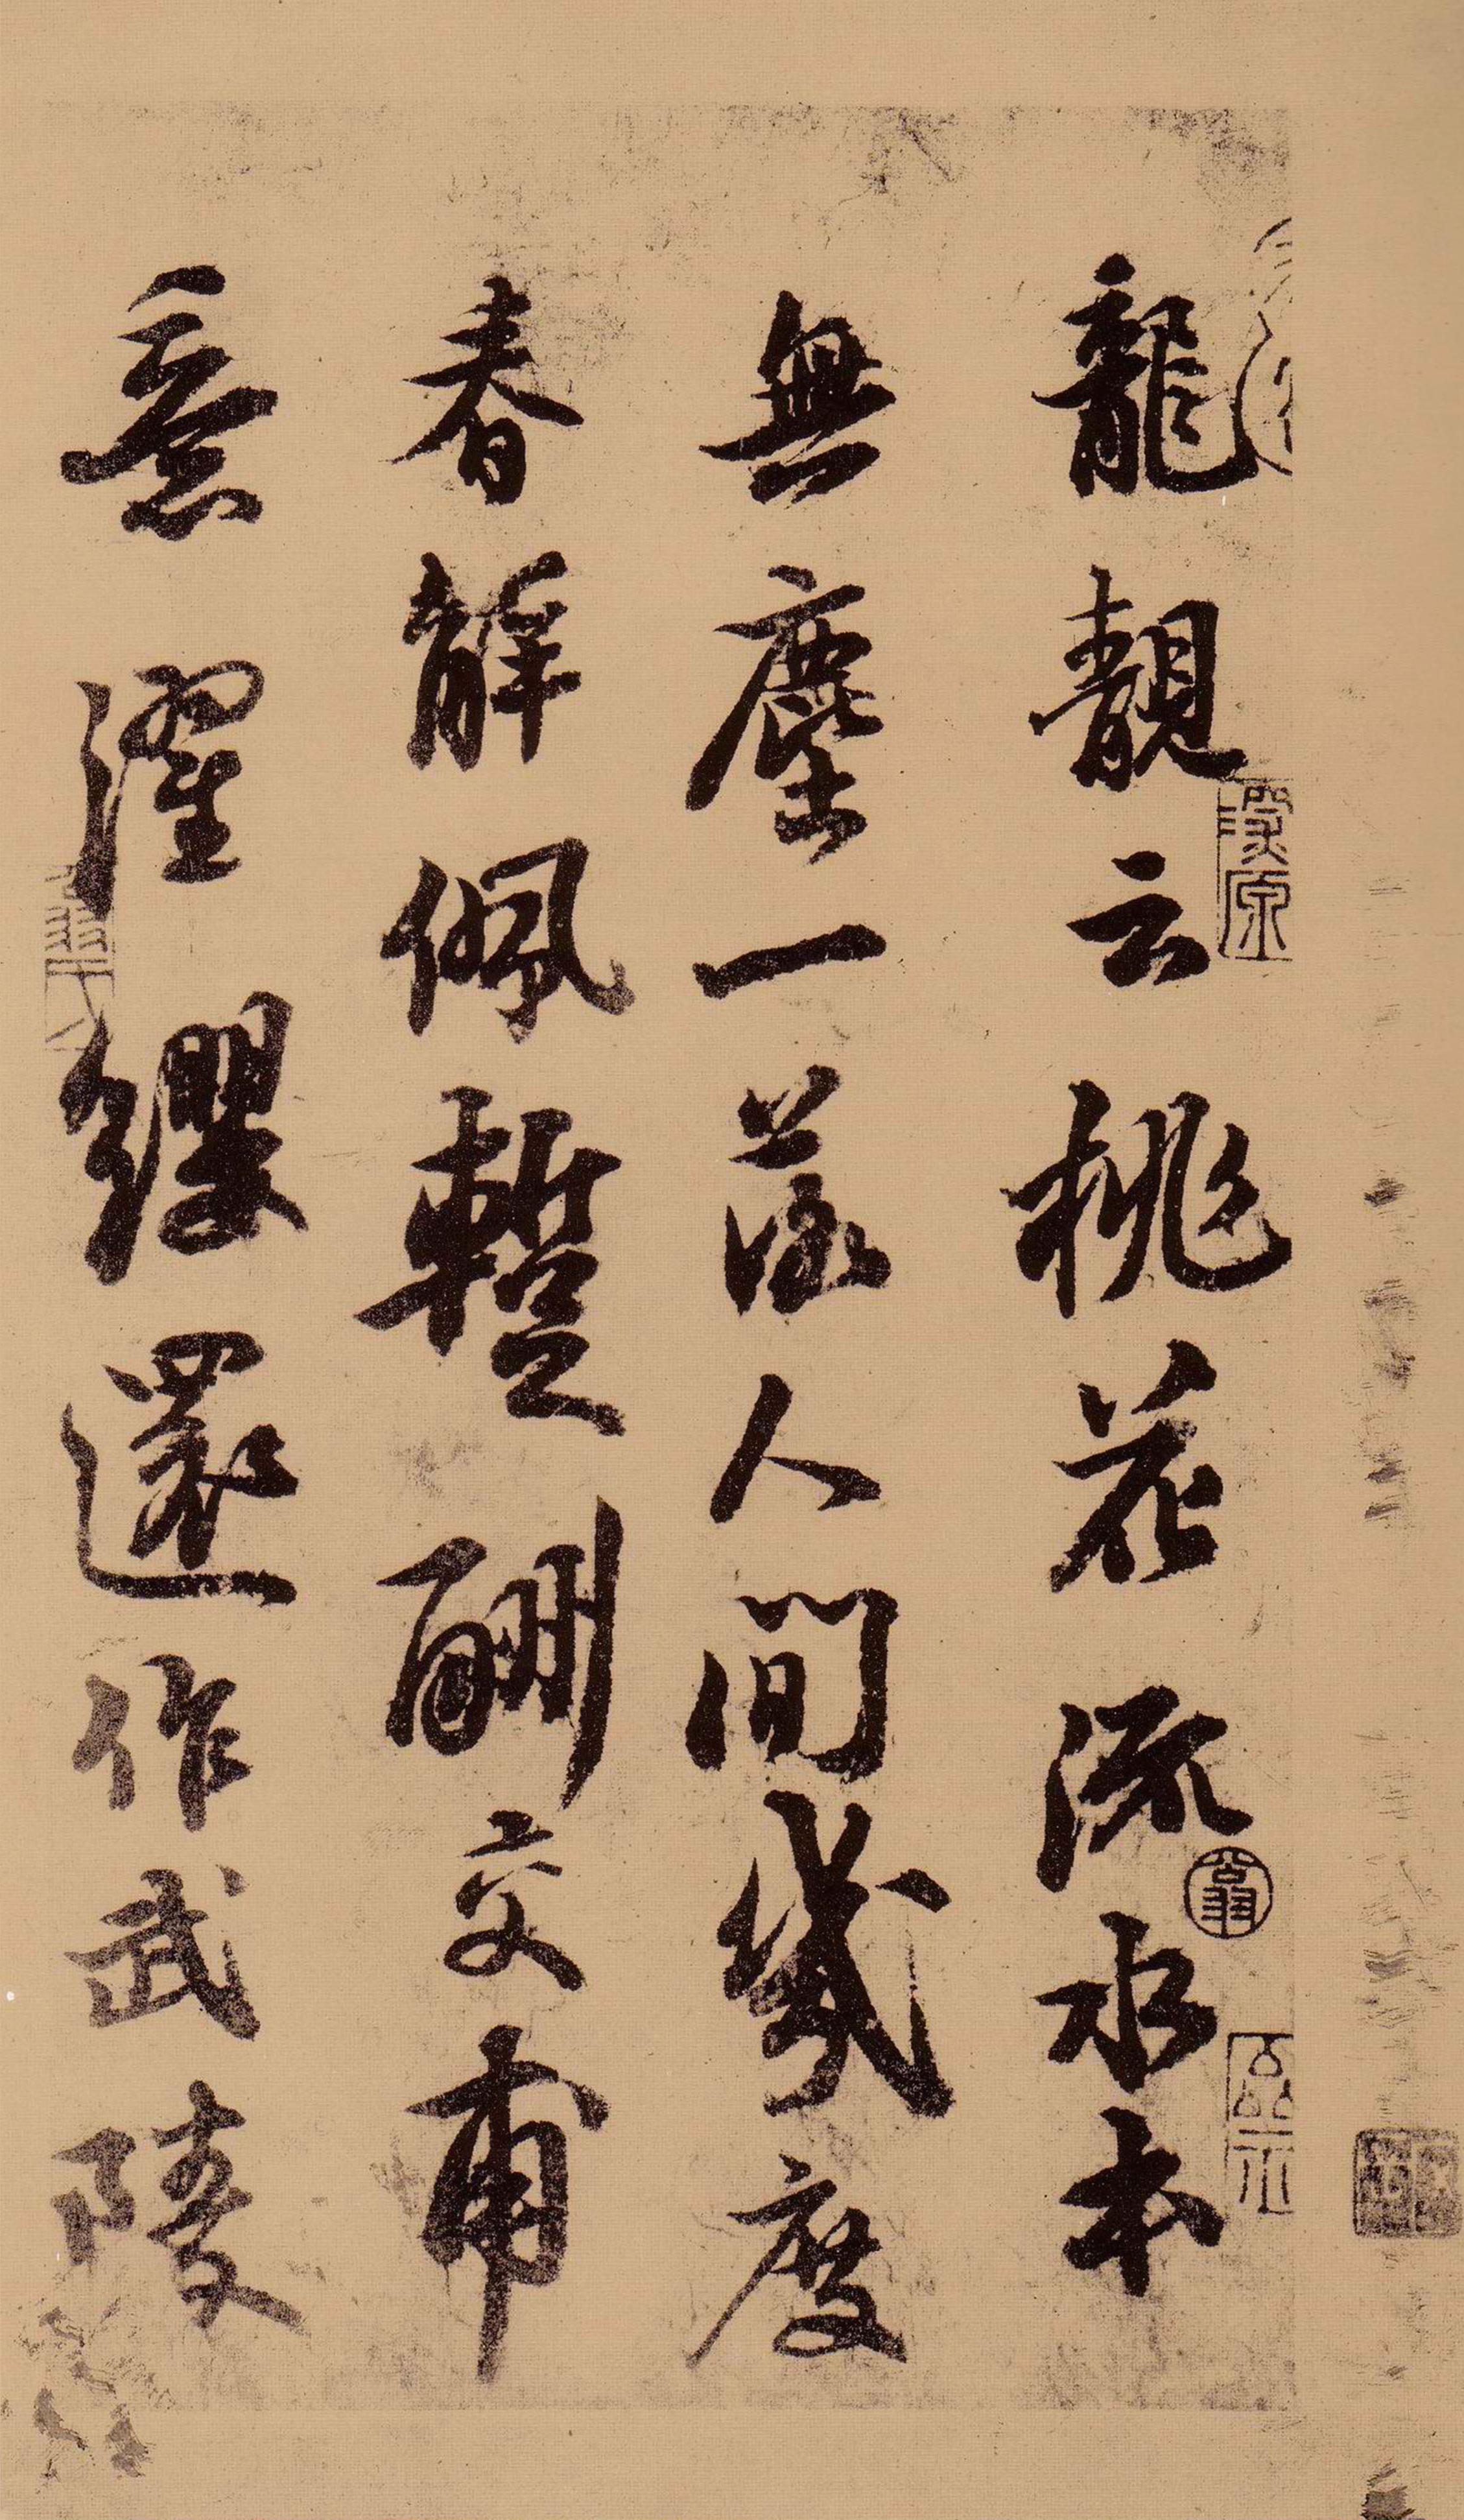 龍靚云桃花流水本
無塵一落人間幾度
春解佩暫酬交甫
意濯纓還作武陵